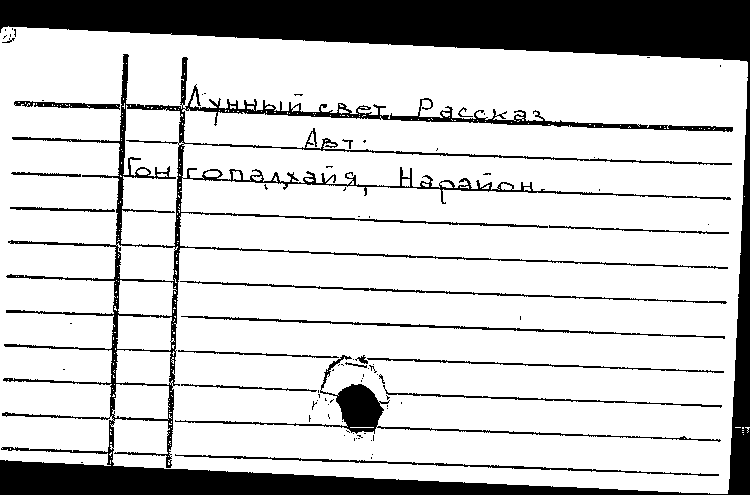 Лунный свет. Рассказ
Авт:
Гонгопадхайя, Нарайон.